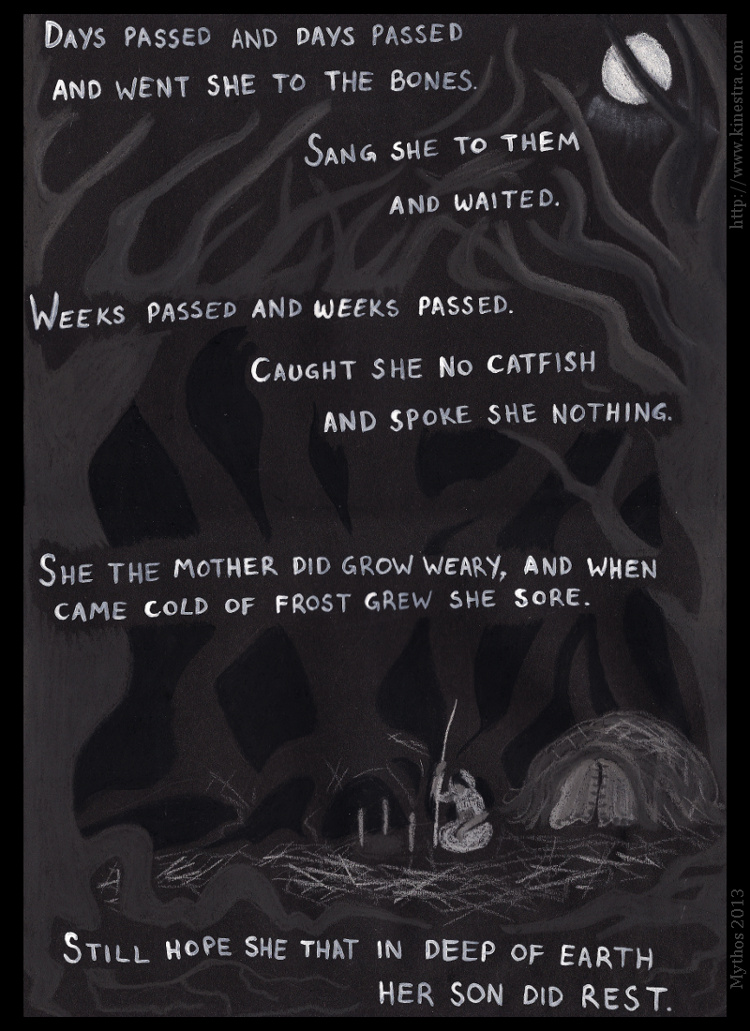 Days passed and days passed
and went she to the bones.
Sang she to them
and waited.
Weeks passed and weeks passed.
Caught she no catfish
and spoke she nothing.
She the mother did grow weary, and when
came cold of frost grew she sore.
Still hope she that in deep of earth
her son did rest.
http://www.kinestra.com
Mythos 2013